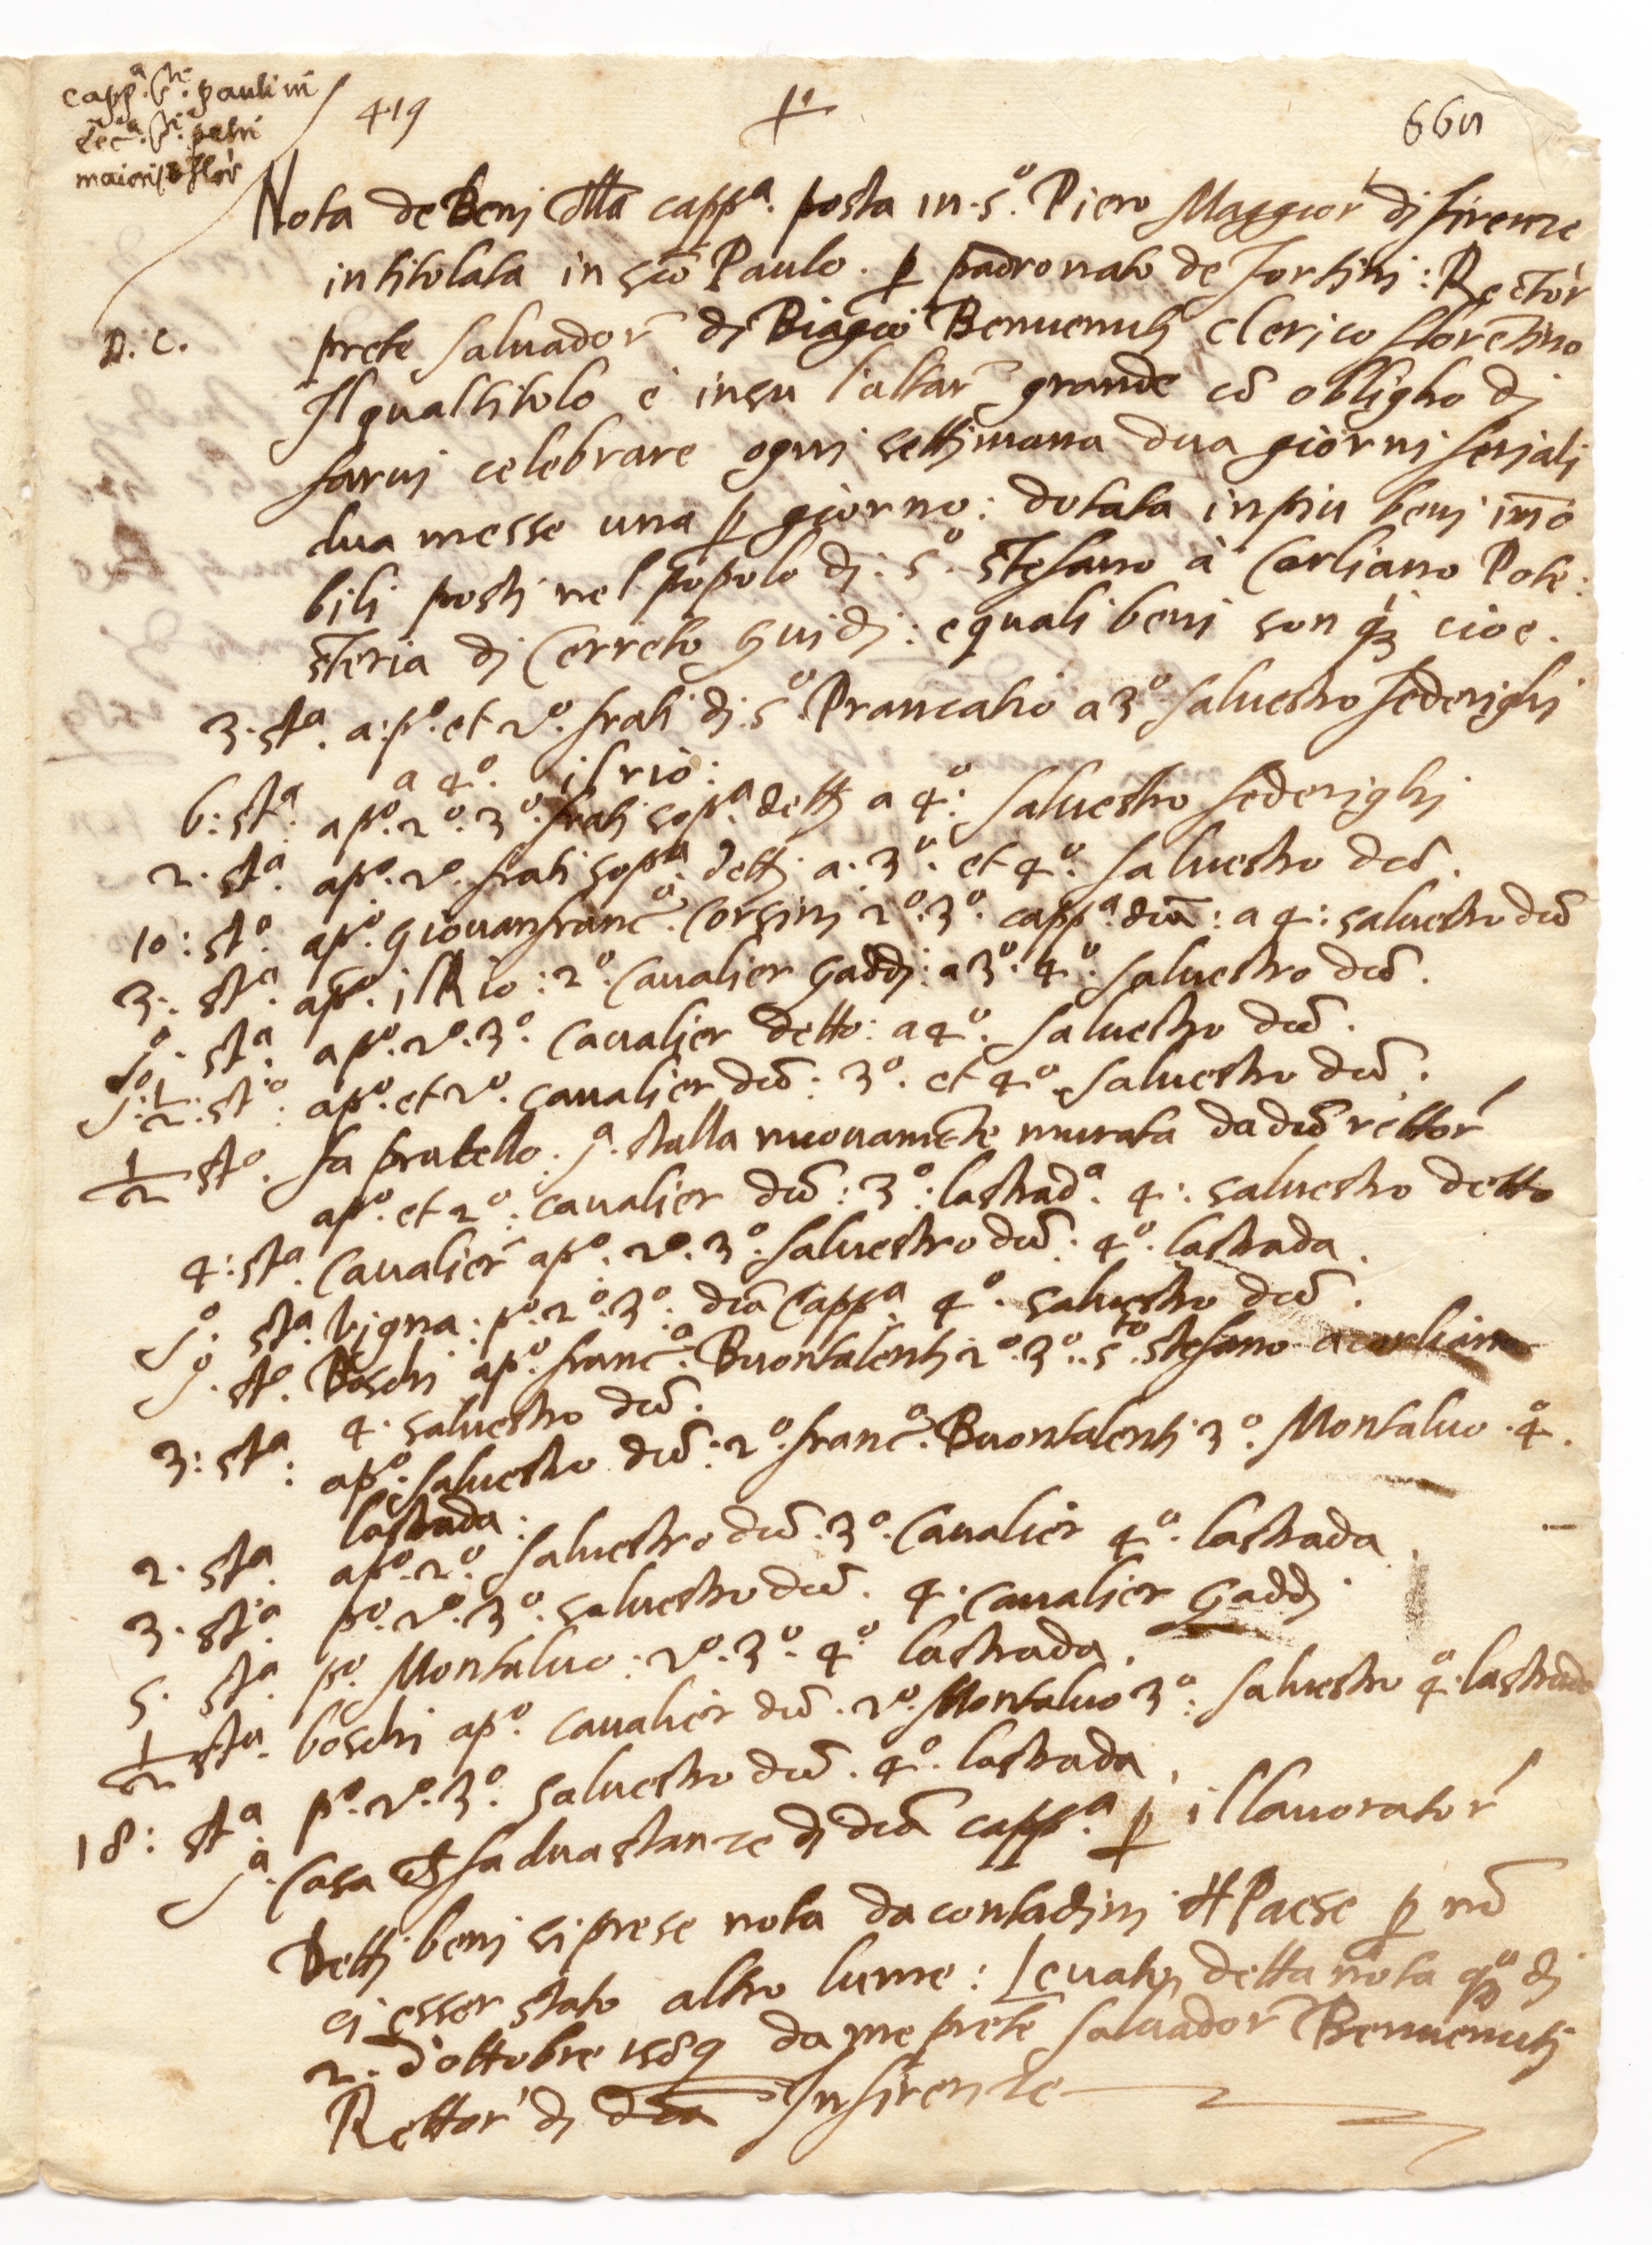 capp.ª S.ti paulini
ecc.ª S.ti petri
maioris flor
419
+
660
Nota de Beni dlla capp.ª posta in s.º Piero Maggior di firenze
intitolata in scō Paulo. p padronato de fortini: Rector
D. C.
prete salvador di Biagio Benvenuti clerico florētino
Il qual titolo è insu l'altar grande cō obligho di
farvi celebrare ogni settimana dua giorni feriali
dua messe una p giorno: dotata in piu beni imō
bili posti nel popolo di s.º stefano à Corliano Pote:
steria di Cerreto Guidi: e quali beni son q̄ cioe.
3. st.ª a: p.º et 2.º frati di s.º Prancatio a 3.º salvestro federighi
a 4.º il rio:
6: st.ª a p.º 2.º 3.º frati sop.ª detti a 4.º salvestro federighi
2. st.ª a p.º 2.º frati sop.ª detti a. 3.º et 4.º salvestro dcō.
10: st.º a p.º giovanfranc.º Corsini 2.º 3.º capp.ª dcā: a 4: salvestro dcō
3. st.ª a p.º il Rio: 2.º Cavalier Gaddi: a 3.º 4.º salvestro dcō.
st.ª a p.º 2.º 3.º cavalier detto: a 4.º salvestro dcō.
1/2: st.º a p.º et 2.º cavalier dcō: 3.º et 4.º salvestro dcō.
1/2 st.º fa pratello. stalla nuovamēte murata da dcō rettor
a p.º et 2.º: cavalier dcō: 3.º: lastrad.ª 4: salvestro detto
4: st.ª Cavalier a p.º 2.º 3.º salvestro dcō: 4.º lastrada.
st.ª vigna: p.º 2.º 3.º dcā Capp.ª 4.º salvestro dcō.
st.º Boschi a p.º franc.º Buontalenti 2.º 3.º s.to stefano a corliano
4. salvestro dcō.
3: st.ª: a p.º salvestro dcō: 2.º franc.º Buontalenti 3.º Montalvo. 4.º
lastrada:
2. st.ª a p.º 2.º salvestro dcō. 3.º Cavalier 4.º lastrada.
3. st.ª p.º 2.º 3.º salvestro dcō. 4. Cavalier Gaddi
5. st.ª p.º Montalvo: 2.º 3.º 4.º lastrada.
1/2 st.ª boschi a p.º cavalier dcō. 2.º Montalvo 3.º: salvestro 4.º lastrada
18: st.ª p.º 2.º 3.º salvestro dcō. 4.º lastrada.
Casa fa dua stanze di dcā capp.ª p il lavorator
Detti beni si prese nota da contadini dl Paese p nō
ci esser stato altro lume: levato detta nota q.º di
2. d'ottobre 1589 da me prete salvador Benvenuti
Rettor di dcā In firenze